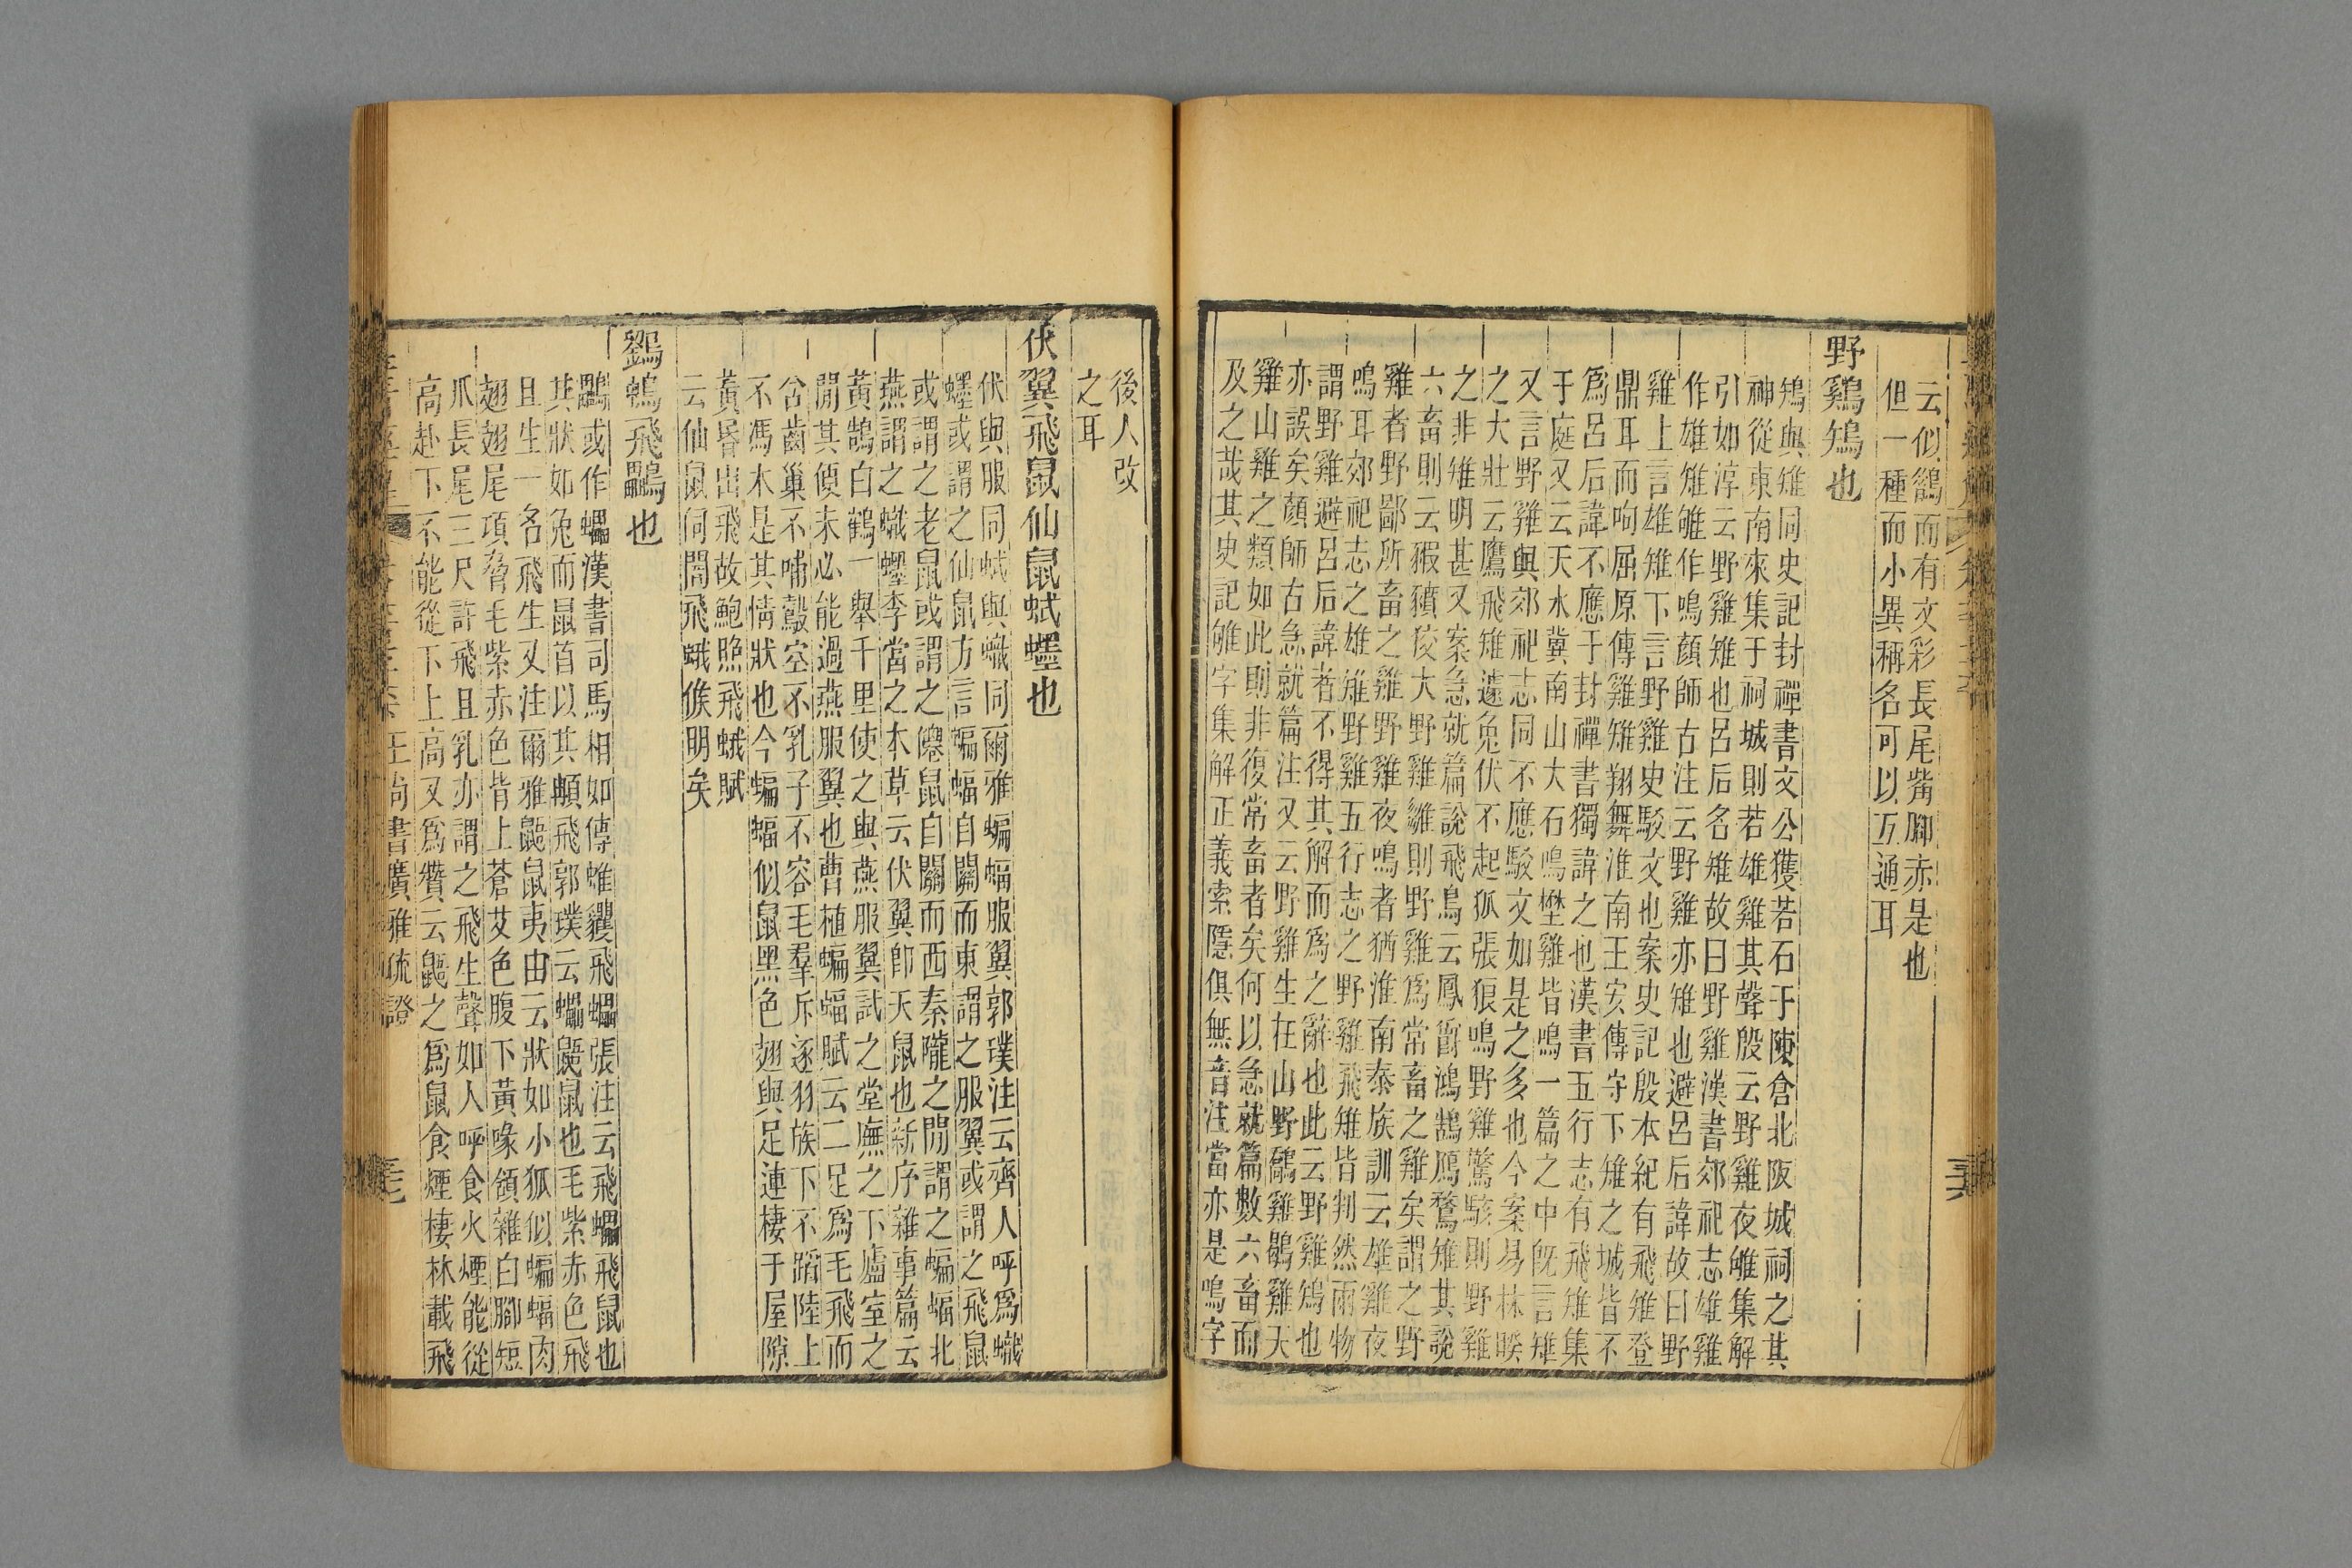 云似鶴而有文彩長尾觜腳赤是也
但一種而小異稱名可以互通耳
野鷄鴙也
鴙與雉同史記封禪書文公獲若石于陳倉北阪城祠之其
神從東南來集于祠城則若雄雞其聲殷云野雞夜雊集解
引如淳云野雞雉也呂后名雉故曰野雞漢書郊祀志雄雞
作雄雉雊作鳴顏師古注云野雞亦雉也避呂后諱故曰野
雞上言雄雉下言野雞史駮文也案史記殷本紀有飛雉登
鼎耳而呴屈原傳雞雉翔舞淮南王安傳守下雉之城皆不
爲呂后諱不應于封禪書獨諱之也漢書五行志有飛雉集
于庭又云天水冀南山大石鳴壄雞皆鳴一篇之中旣言雉
又言野雞與郊祀志同不應駮文如是之多也今案易林睽
之大壯云鷹飛雉遽兔伏不起狐張狼鳴野雞驚駭則野雞
之非雉明甚又案急就篇說飛鳥云鳳爵鴻鵠鴈鶩雉其說
六畜則云豭豶狡犬野雞雛則野雞爲常畜之雞矣謂之野
雞者野鄙所畜之雞野雞夜鳴者猶淮南泰族訓云雄雞夜
鳴耳郊祀志之雄雉野雞五行志之野雞飛雉皆判然兩物
謂野雞避呂后諱者不得其解而爲之辭也此云野雞鴙也
亦誤矣顏師古急就篇注又云野雞生在山野鷸雞鶡雞天
雞山雞之類如此則非復常畜者矣何以急就篇數六畜而
及之哉其史記雊字集解正義索隱俱無音注當亦是鳴字
後人改
之耳
伏翼飛鼠仙鼠蚮䘃也
伏與服同蚮與蟙同爾雅蝙蝠服翼郭璞注云齊人呼爲蟙
䘃或謂之仙鼠方言蝙蝠自關而東謂之服翼或謂之飛鼠
或謂之老鼠或謂之僊鼠自關而西秦隴之閒謂之蝙蝠北
燕謂之蟙䘃李當之本草云伏翼卽天鼠也新序雜事篇云
黃鵠白鶴一舉千里使之與燕服翼試之堂廡之下廬室之
閒其便未必能過燕服翼也曹植蝙蝠賦云二足爲毛飛而
含齒巢不哺鷇空不乳子不容毛羣斥逐羽族下不蹈陸上
不馮木是其情狀也今蝙蝠似鼠黑色翅與足連棲于屋隙
黃昬出飛故鮑照飛蛾賦
云仙鼠伺闇飛蛾候明矣
鸓或作蠝漢書司馬相如傳蜼玃飛蠝張注云飛蠝飛鼠也
其狀如兔而鼠首以其頄飛郭璞云蠝鼯鼠也毛紫赤色飛
且生一名飛生又注爾雅鼯鼠夷由云狀如小狐似蝙蝠肉
翅翅尾項脅毛紫赤色背上蒼艾色腹下黃喙頷雜白腳短
爪長尾三尺許飛且乳亦謂之飛生聲如人呼食火煙能從
高赴下不能從下上高又爲讚云鼯之爲鼠食煙棲林載飛
王尚書廣雅疏證